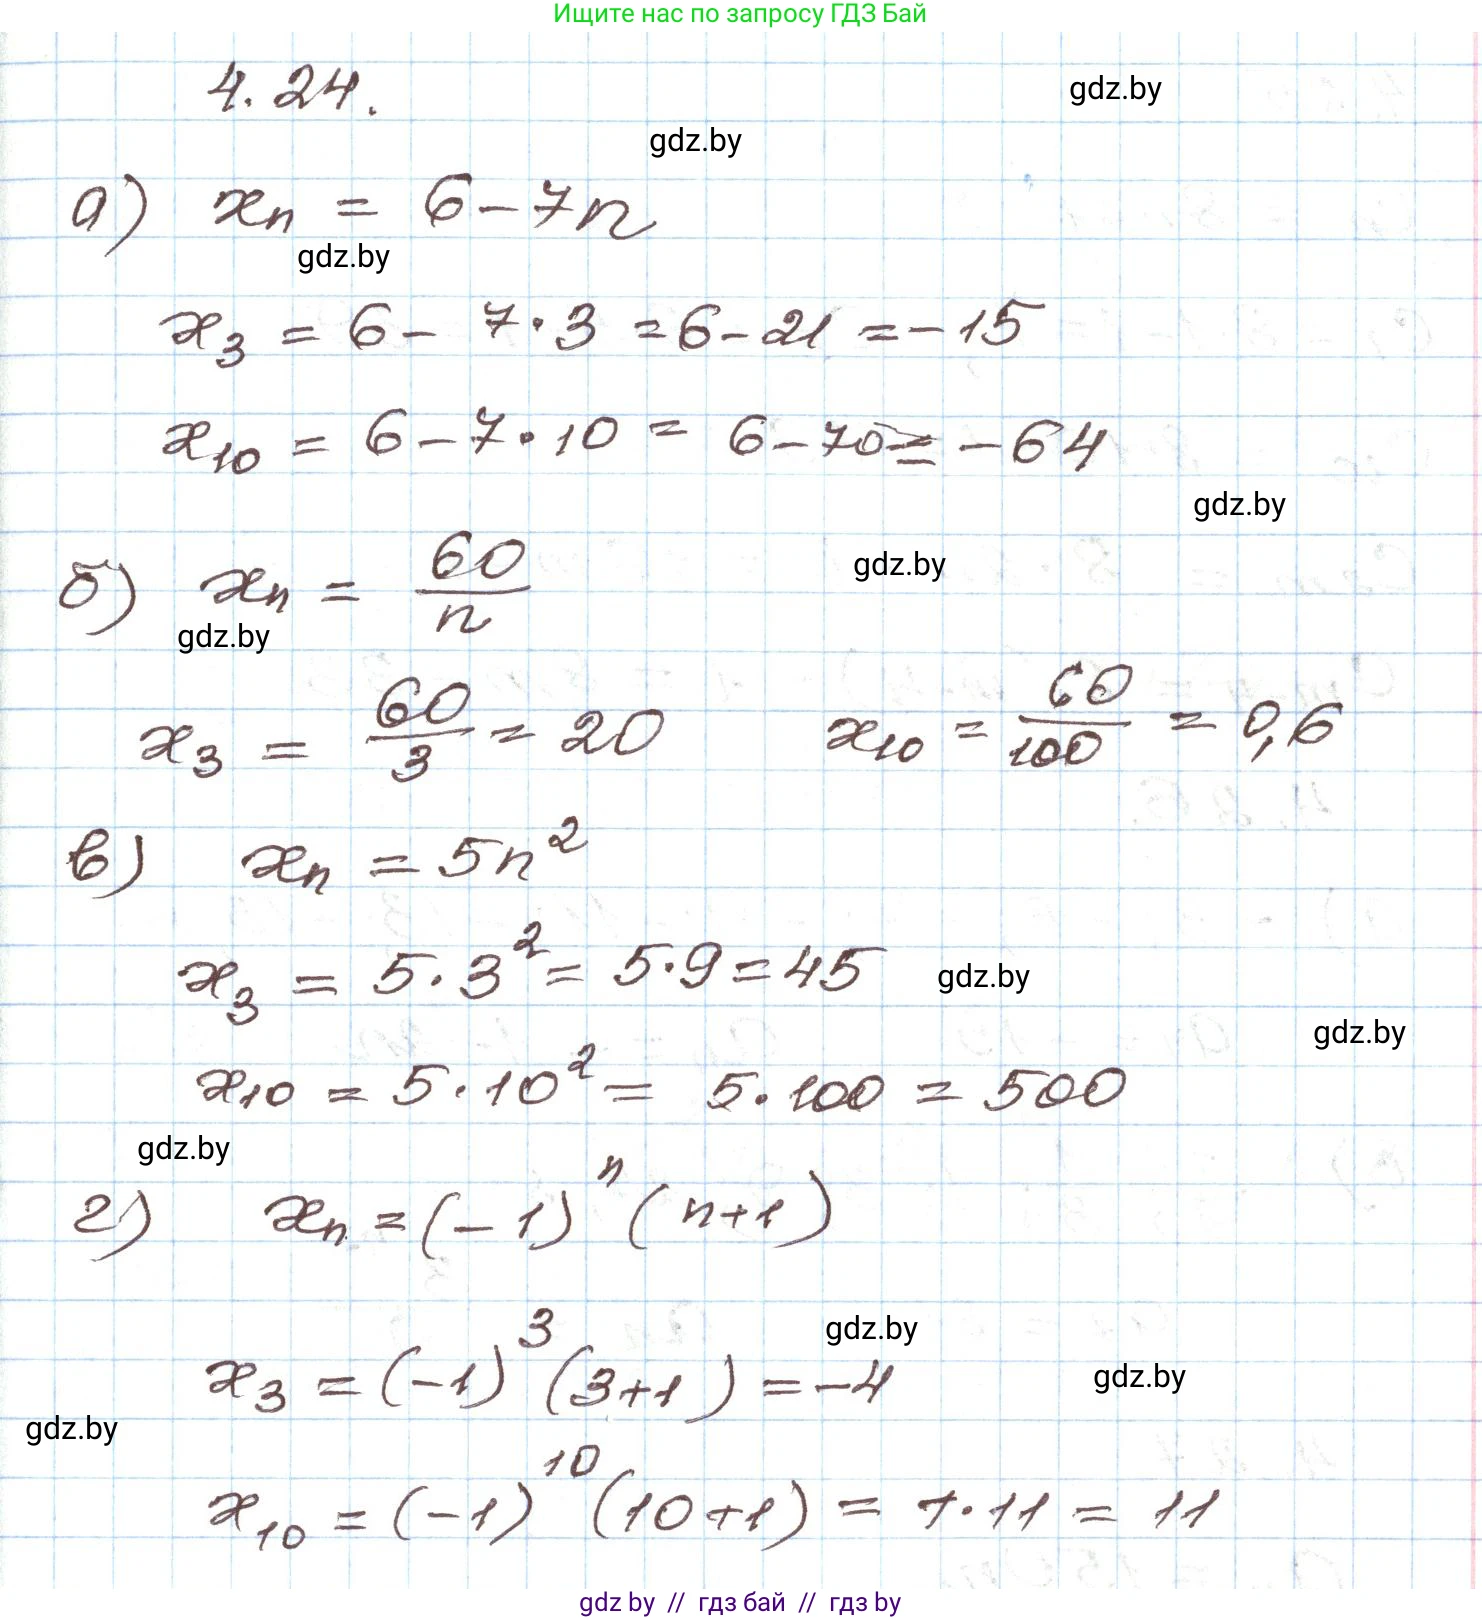 Ищите нас по запросу ГДЗ Бай
4.24.
gdz.by
gdz.by
а) xₙ = 6 - 7n
gdz.by
x₃ = 6 - 7·3 = 6 - 21 = -15
x₁₀ = 6 - 7·10 = 6 - 70 = -64
gdz.by
gdz.by
б) xₙ = 60/n
gdz.by
x₃ = 60/3 = 20 x₁₀ = 60/100 = 0,6
в) xₙ = 5n²
x₃ = 5·3² = 5·9 = 45
gdz.by
gdz.by
x₁₀ = 5·10² = 5·100 = 500
gdz.by
г) xₙ = (-1)ⁿ (n+1)
gdz.by
x₃ = (-1)³ (3+1) = -4
gdz.by
gdz.by
x₁₀ = (-1)¹⁰ (10+1) = 1·11 = 11
gdz.by // гдз бай // гдз by